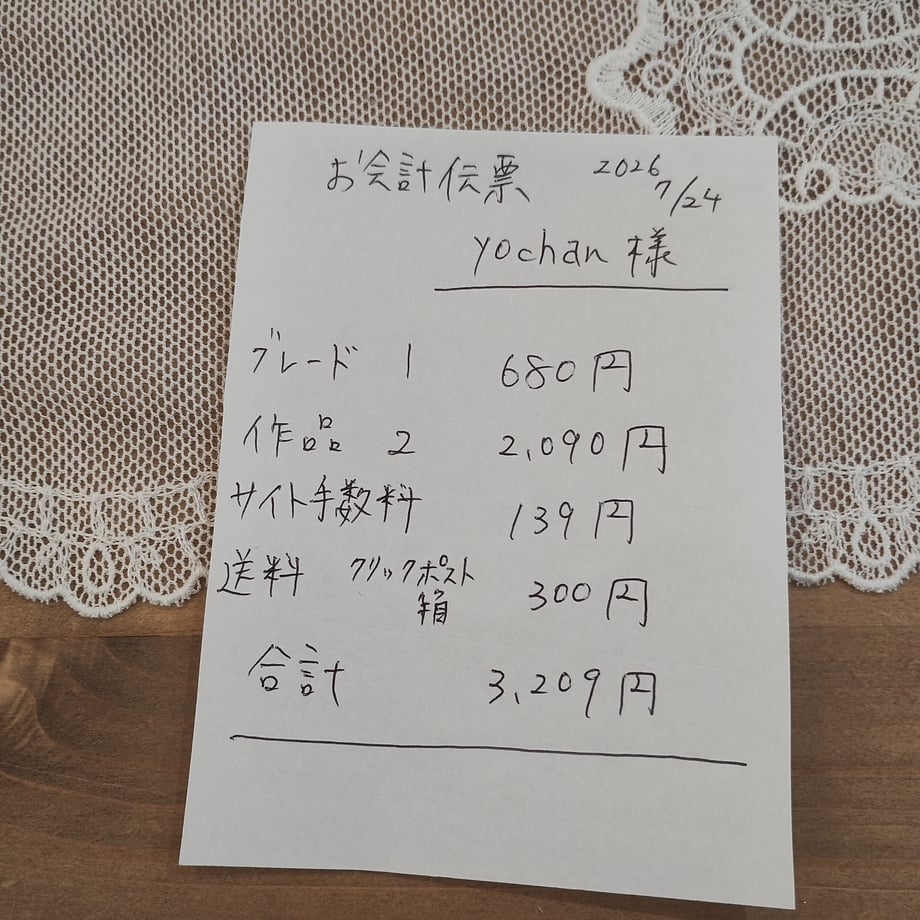 お会計伝票 2026 7/24
yochan 様
ブレード 1 680円
作品 2 2,090円
サイト手数料 139円
送料 クリックポスト箱 300円
合計 3,209円